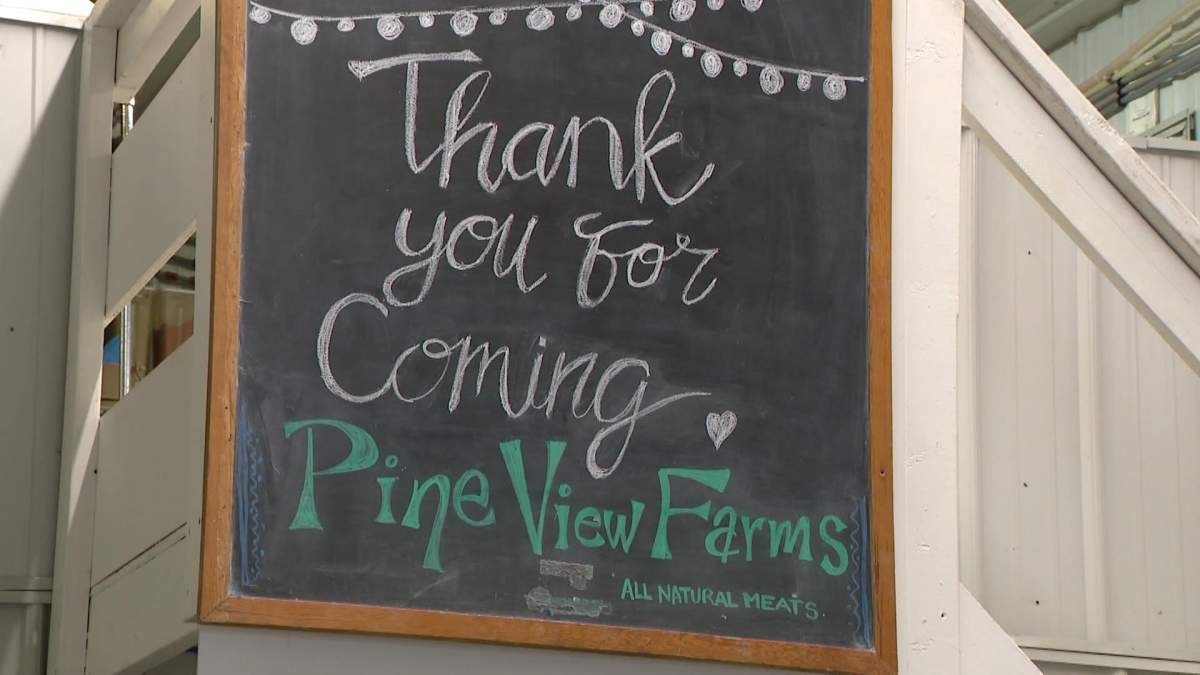 Thank
you for
Coming
Pine View Farms
ALL NATURAL MEATS